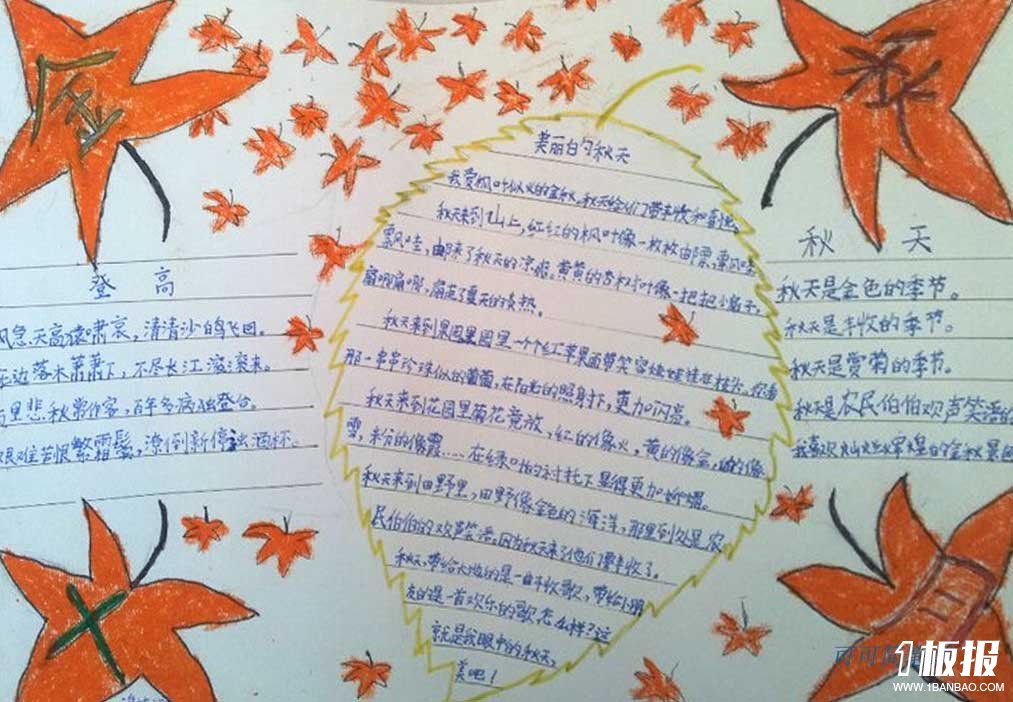 金
秋
十
月
登高
风急天高猿啸哀，清清沙鸥飞回。
无边落木萧萧下，不尽长江滚滚来。
万里悲秋常作客，百年多病独登台。
艰难苦恨繁霜鬓，潦倒新停浊酒杯。
美丽的秋天
我爱枫叶似火的金秋。秋天给人们带来丰收和喜悦。
秋天来到山上，红红的枫叶像一枚枚邮票，飘风哇
飘哇，邮来了秋天的凉爽。黄黄的杏树叶像一把把小扇子，
扇呀扇呀，扇走了夏天的炎热。
秋天来到果园里果园里一个个红苹果面带笑容
那一串串珍珠似的葡萄，在阳光的照身下，更加闪亮。
秋天来到花园里菊花竞放，红的像火，黄的像金，白的像
雪，粉的像霞……在绿叶的衬托下显得更加娇媚。
秋天来到田野里，田野像金色的海洋，那里到处是农
民伯伯的欢声笑语，因为秋天来了他们要丰收了。
秋天，带给大地的是一曲丰收歌，带给小朋
友的是一首欢乐的歌。怎么样？这
就是我眼中的秋天，
美吧！
秋天
秋天是金色的季节。
秋天是丰收的季节。
秋天是赏菊的季节。
秋天是农民伯伯欢声笑语的
我喜欢火山火丝军火皇的金秋景
1板报
WWW.1BANBAO.COM